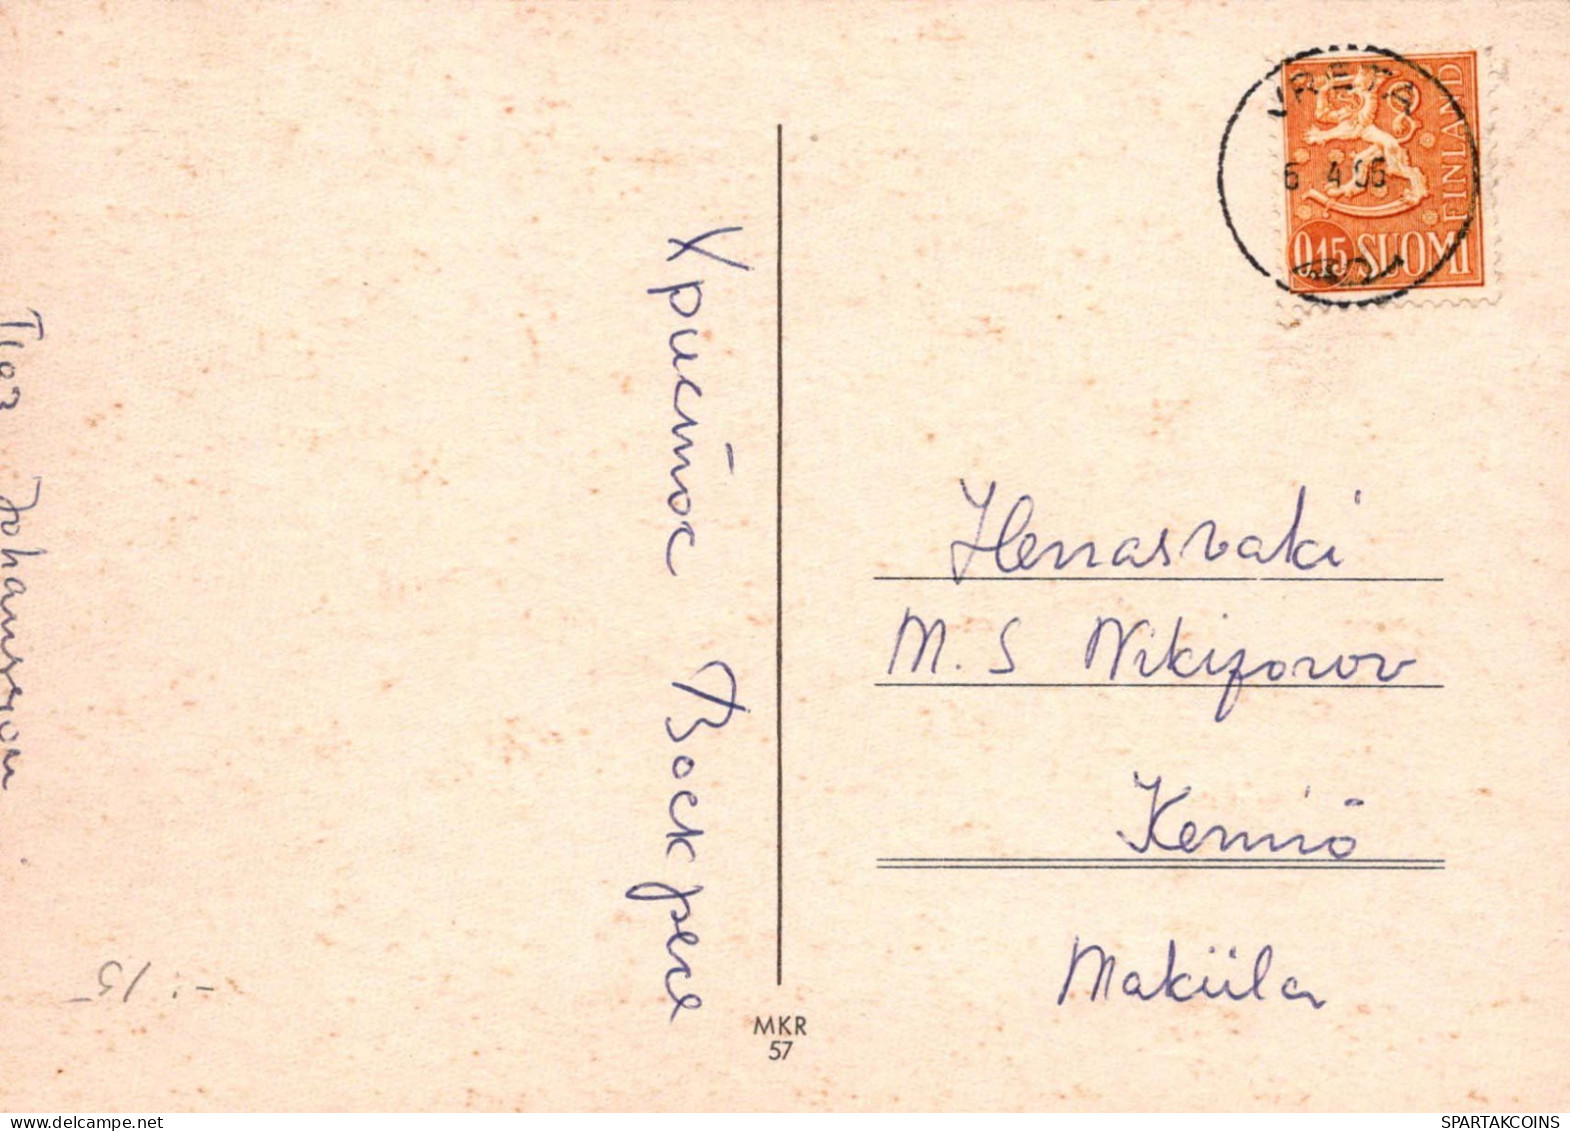 Христос Воскресе
Johansson
-: 15
MKR
57
VRETA
6 4 66
FINLAND
0,15 SUOMI
Herrasväki
M. S Nikiforov
Kemiö
Makiila
SPARTAKCOINS
delcampe.net